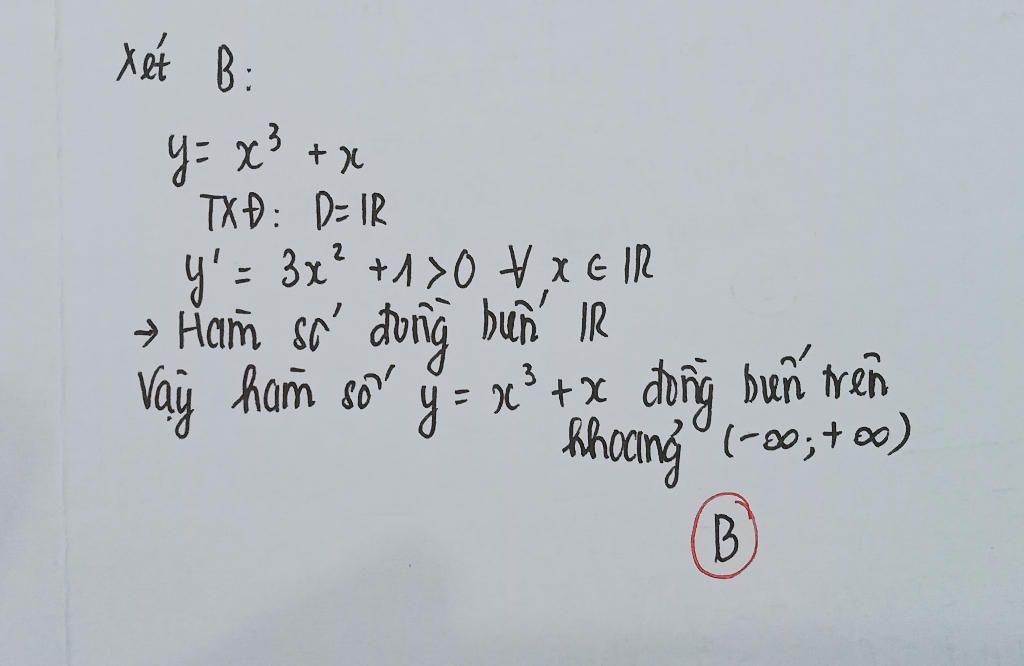 Xét B:
y = x³ + x
TXĐ: D = ℝ
y' = 3x² + 1 > 0 ∀ x ∈ ℝ
→ Hàm số đồng biến ℝ
Vậy hàm số y = x³ + x đồng biến trên
khoảng (-∞; +∞)
B